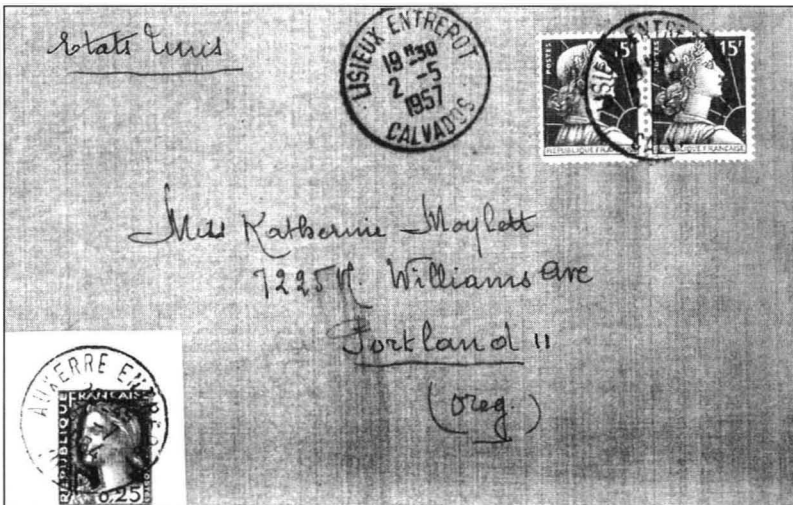 Etats Unis
LISIEUX ENTREPOT
19H30
2 -5
1957
CALVADOS
POSTES 15F
POSTES 15F
LISIEUX ENTRE
REPUBLIQUE FRANÇAISE
REPUBLIQUE FRANÇAISE
Miss Katherine Moylett
7225 N. Williams Ave
Portland 11
(Oreg.)
AUXERRE ENTREPO
REPUBLIQUE FRANÇAISE
0,25